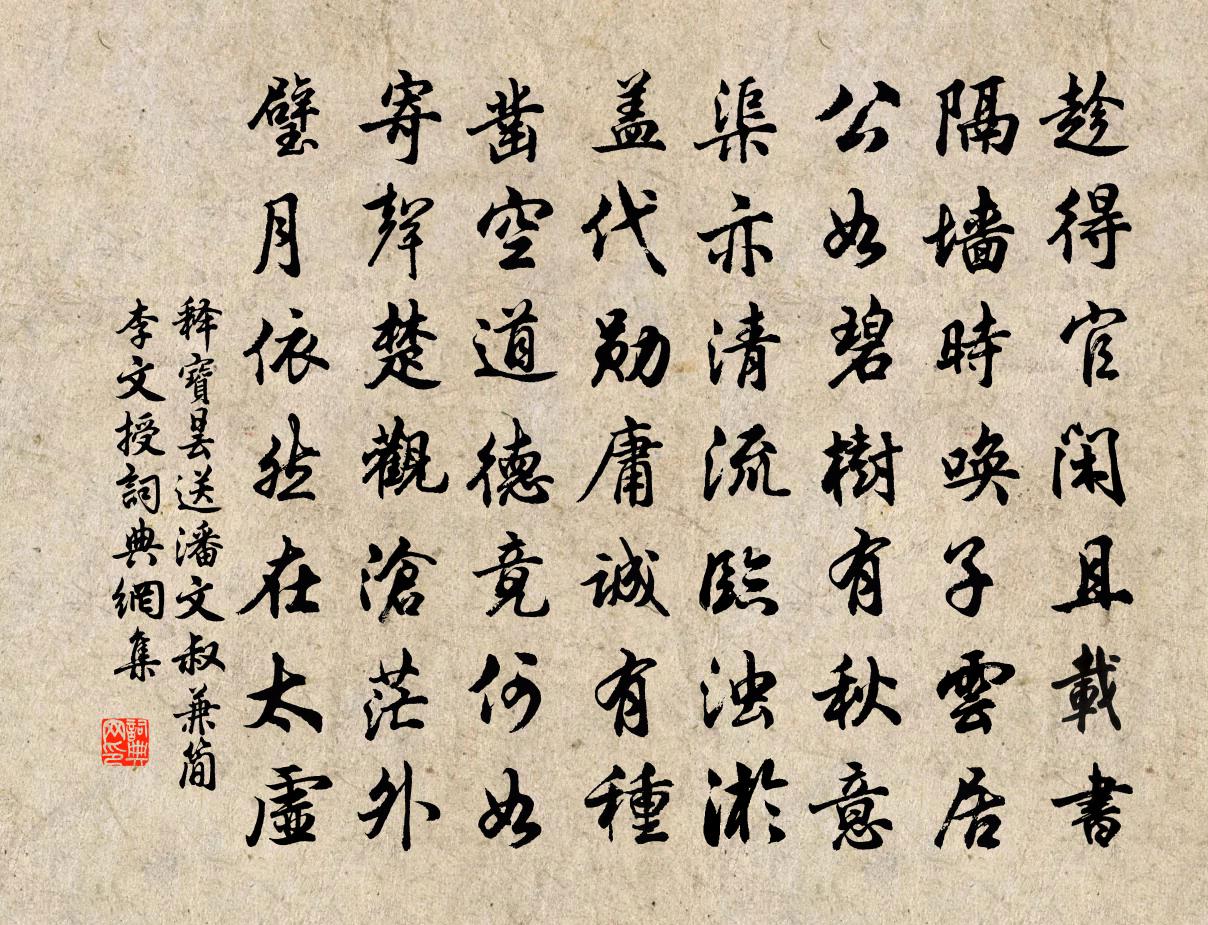 趁得官閑且載書
隔墻時喚子雲居
公如碧樹有秋意
渠亦清流臨浊淤
盖代勋庸诚有種
凿空道德竟何如
寄聲楚觀滄茫外
璧月依然在太虛
释寶昙送潘文叔兼简
李文授詞典網集
詞典
网印